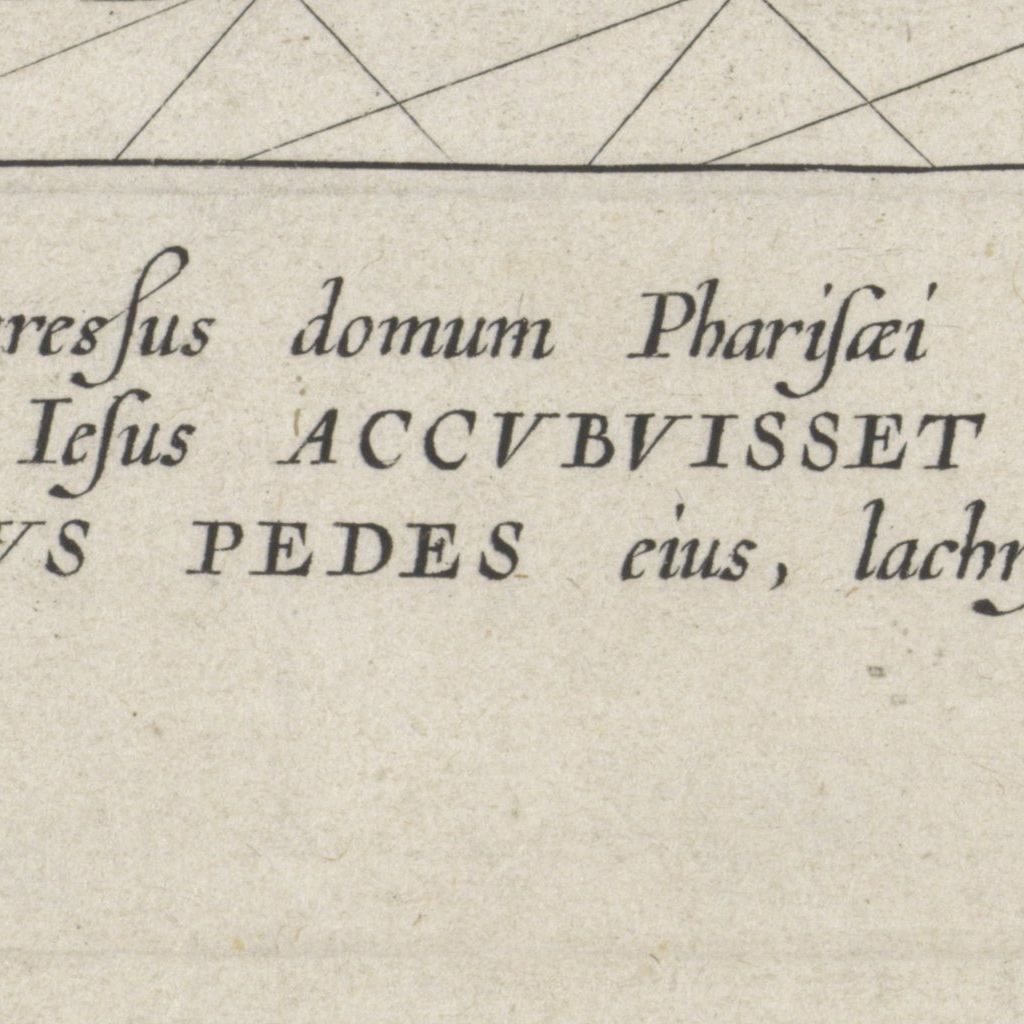 gresſus domum Phariſæi
Ieſus ACCVBVISSET
VS PEDES eius, lachry